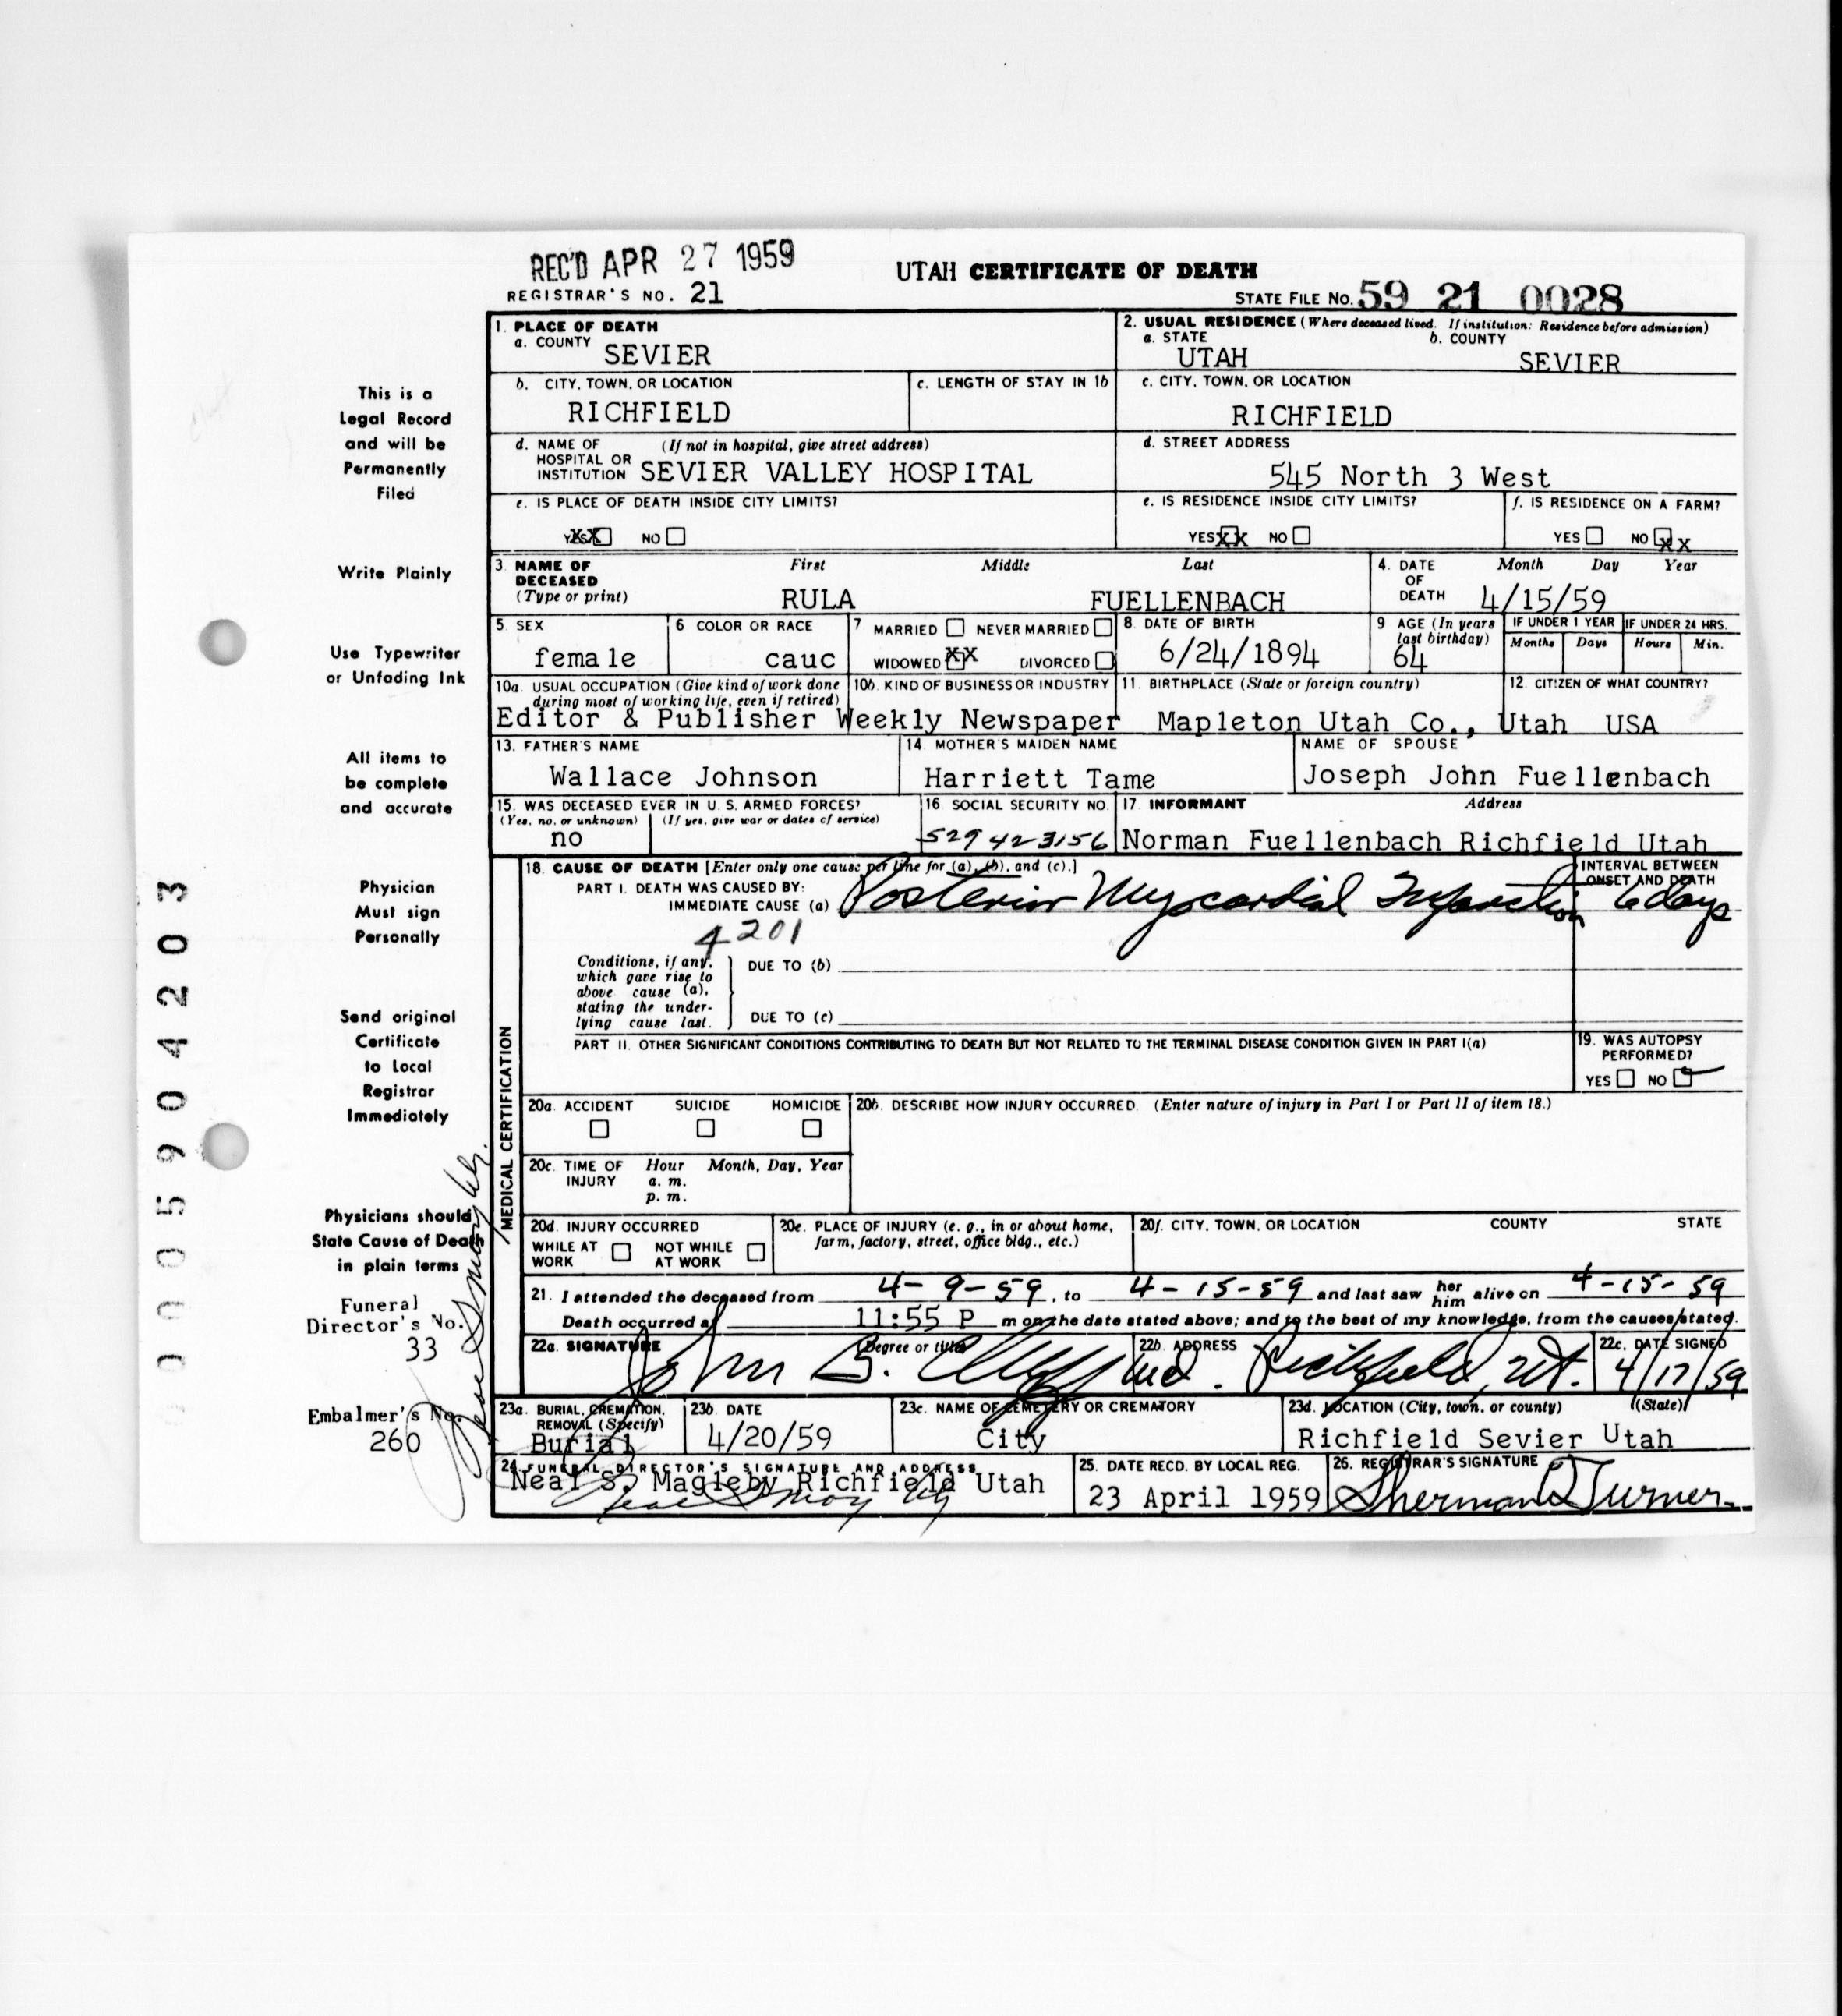 REC'D APR 27 1959
UTAH CERTIFICATE OF DEATH
REGISTRAR'S NO. 21
STATE FILE NO. 59 21 0028
1. PLACE OF DEATH
a. COUNTY SEVIER
2. USUAL RESIDENCE (Where deceased lived. If institution: Residence before admission)
a. STATE UTAH b. COUNTY SEVIER
b. CITY, TOWN, OR LOCATION RICHFIELD
c. LENGTH OF STAY IN 1b
c. CITY, TOWN, OR LOCATION RICHFIELD
d. NAME OF HOSPITAL OR INSTITUTION (If not in hospital, give street address) SEVIER VALLEY HOSPITAL
d. STREET ADDRESS 545 North 3 West
e. IS PLACE OF DEATH INSIDE CITY LIMITS?
YES XX NO
e. IS RESIDENCE INSIDE CITY LIMITS?
YES XX NO
f. IS RESIDENCE ON A FARM?
YES NO XX
3. NAME OF DECEASED (Type or print) First Middle Last
RULA FUELLENBACH
4. DATE OF DEATH Month Day Year
4/15/59
5. SEX female
6 COLOR OR RACE cauc
7 MARRIED NEVER MARRIED
WIDOWED XX DIVORCED
8. DATE OF BIRTH 6/24/1894
9 AGE (In years last birthday) 64
IF UNDER 1 YEAR Months Days
IF UNDER 24 HRS. Hours Min.
10a. USUAL OCCUPATION (Give kind of work done during most of working life, even if retired)
Editor & Publisher
10b. KIND OF BUSINESS OR INDUSTRY
Weekly Newspaper
11. BIRTHPLACE (State or foreign country)
Mapleton Utah Co., Utah
12. CITIZEN OF WHAT COUNTRY?
USA
13. FATHER'S NAME
Wallace Johnson
14. MOTHER'S MAIDEN NAME
Harriett Tame
NAME OF SPOUSE
Joseph John Fuellenbach
15. WAS DECEASED EVER IN U. S. ARMED FORCES?
(Yes, no, or unknown) (If yes, give war or dates of service)
no
16 SOCIAL SECURITY NO.
529 42 3156
17. INFORMANT Address
Norman Fuellenbach Richfield Utah
18. CAUSE OF DEATH [Enter only one cause per line for (a), (b), and (c).]
INTERVAL BETWEEN ONSET AND DEATH
PART I. DEATH WAS CAUSED BY:
IMMEDIATE CAUSE (a) Posterior Myocardial Infarction 6 days
4201
Conditions, if any, which gave rise to above cause (a), stating the underlying cause last.
DUE TO (b)
DUE TO (c)
PART II. OTHER SIGNIFICANT CONDITIONS CONTRIBUTING TO DEATH BUT NOT RELATED TO THE TERMINAL DISEASE CONDITION GIVEN IN PART I(a)
19. WAS AUTOPSY PERFORMED?
YES NO
MEDICAL CERTIFICATION
20a. ACCIDENT SUICIDE HOMICIDE
20b. DESCRIBE HOW INJURY OCCURRED. (Enter nature of injury in Part I or Part II of item 18.)
20c. TIME OF INJURY Hour Month, Day, Year
a. m.
p. m.
20d. INJURY OCCURRED
WHILE AT WORK NOT WHILE AT WORK
20e. PLACE OF INJURY (e. g., in or about home, farm, factory, street, office bldg., etc.)
20f. CITY, TOWN, OR LOCATION COUNTY STATE
21. I attended the deceased from 4-9-59, to 4-15-59 and last saw her him alive on 4-15-59
Death occurred at 11:55 P m on the date stated above; and to the best of my knowledge, from the causes stated.
22a. SIGNATURE (Degree or title)
John G. md.
22b. ADDRESS
Richfield, Ut.
22c. DATE SIGNED
4/17/59
23a. BURIAL, CREMATION, REMOVAL (Specify)
Burial
23b. DATE
4/20/59
23c. NAME OF CEMETERY OR CREMATORY
City
23d. LOCATION (City, town, or county) (State)
Richfield Sevier Utah
24. FUNERAL DIRECTOR'S SIGNATURE AND ADDRESS
Neal S. Magleby Richfield Utah
25. DATE RECD. BY LOCAL REG.
23 April 1959
26. REGISTRAR'S SIGNATURE
Sherman Turner
This is a
Legal Record
and will be
Permanently
Filed
Write Plainly
Use Typewriter
or Unfading Ink
All items to
be complete
and accurate
Physician
Must sign
Personally
Send original
Certificate
to Local
Registrar
Immediately
Physicians should
State Cause of Death
in plain terms
Funeral
Director's No.
33
Embalmer's No.
260
0005904203